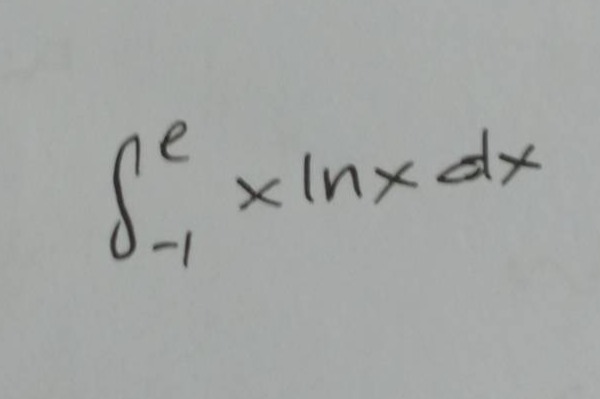 ∫_{-1}^{e} x ln x dx